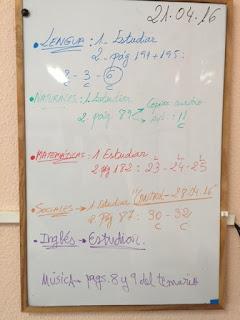 21.04.16
• LENGUA: 1- Estudiar
2- pág 194 + 195:
2 - 3 - 6
C C C
• NATURALES: 1 Estudiar
2 pág 89 Copiar
act. : 11
C
• MATEMÁTICAS: 1 Estudiar
L L L
2 pág 182: 23 - 24 - 25
• SOCIALES → 1 Estudiar CONTROL - 28.04.16
2 pág 87: 30 - 32
C C
• Inglés → Estudiar.
MÚSICA - págs. 8 y 9 del temario